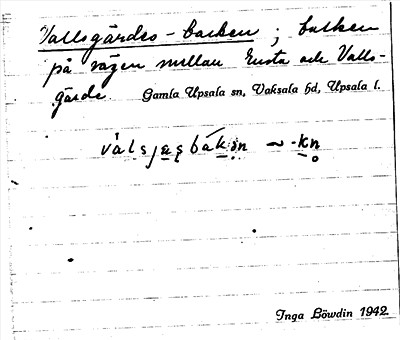 Vallsgärdes-backen; backen
på vägen mellan Ensta och Valls-
gärde. Gamla Upsala sn, Vaksala hd, Upsala l.
válsjäsbákən ~ -kn̥
Inga Löwdin 1942.